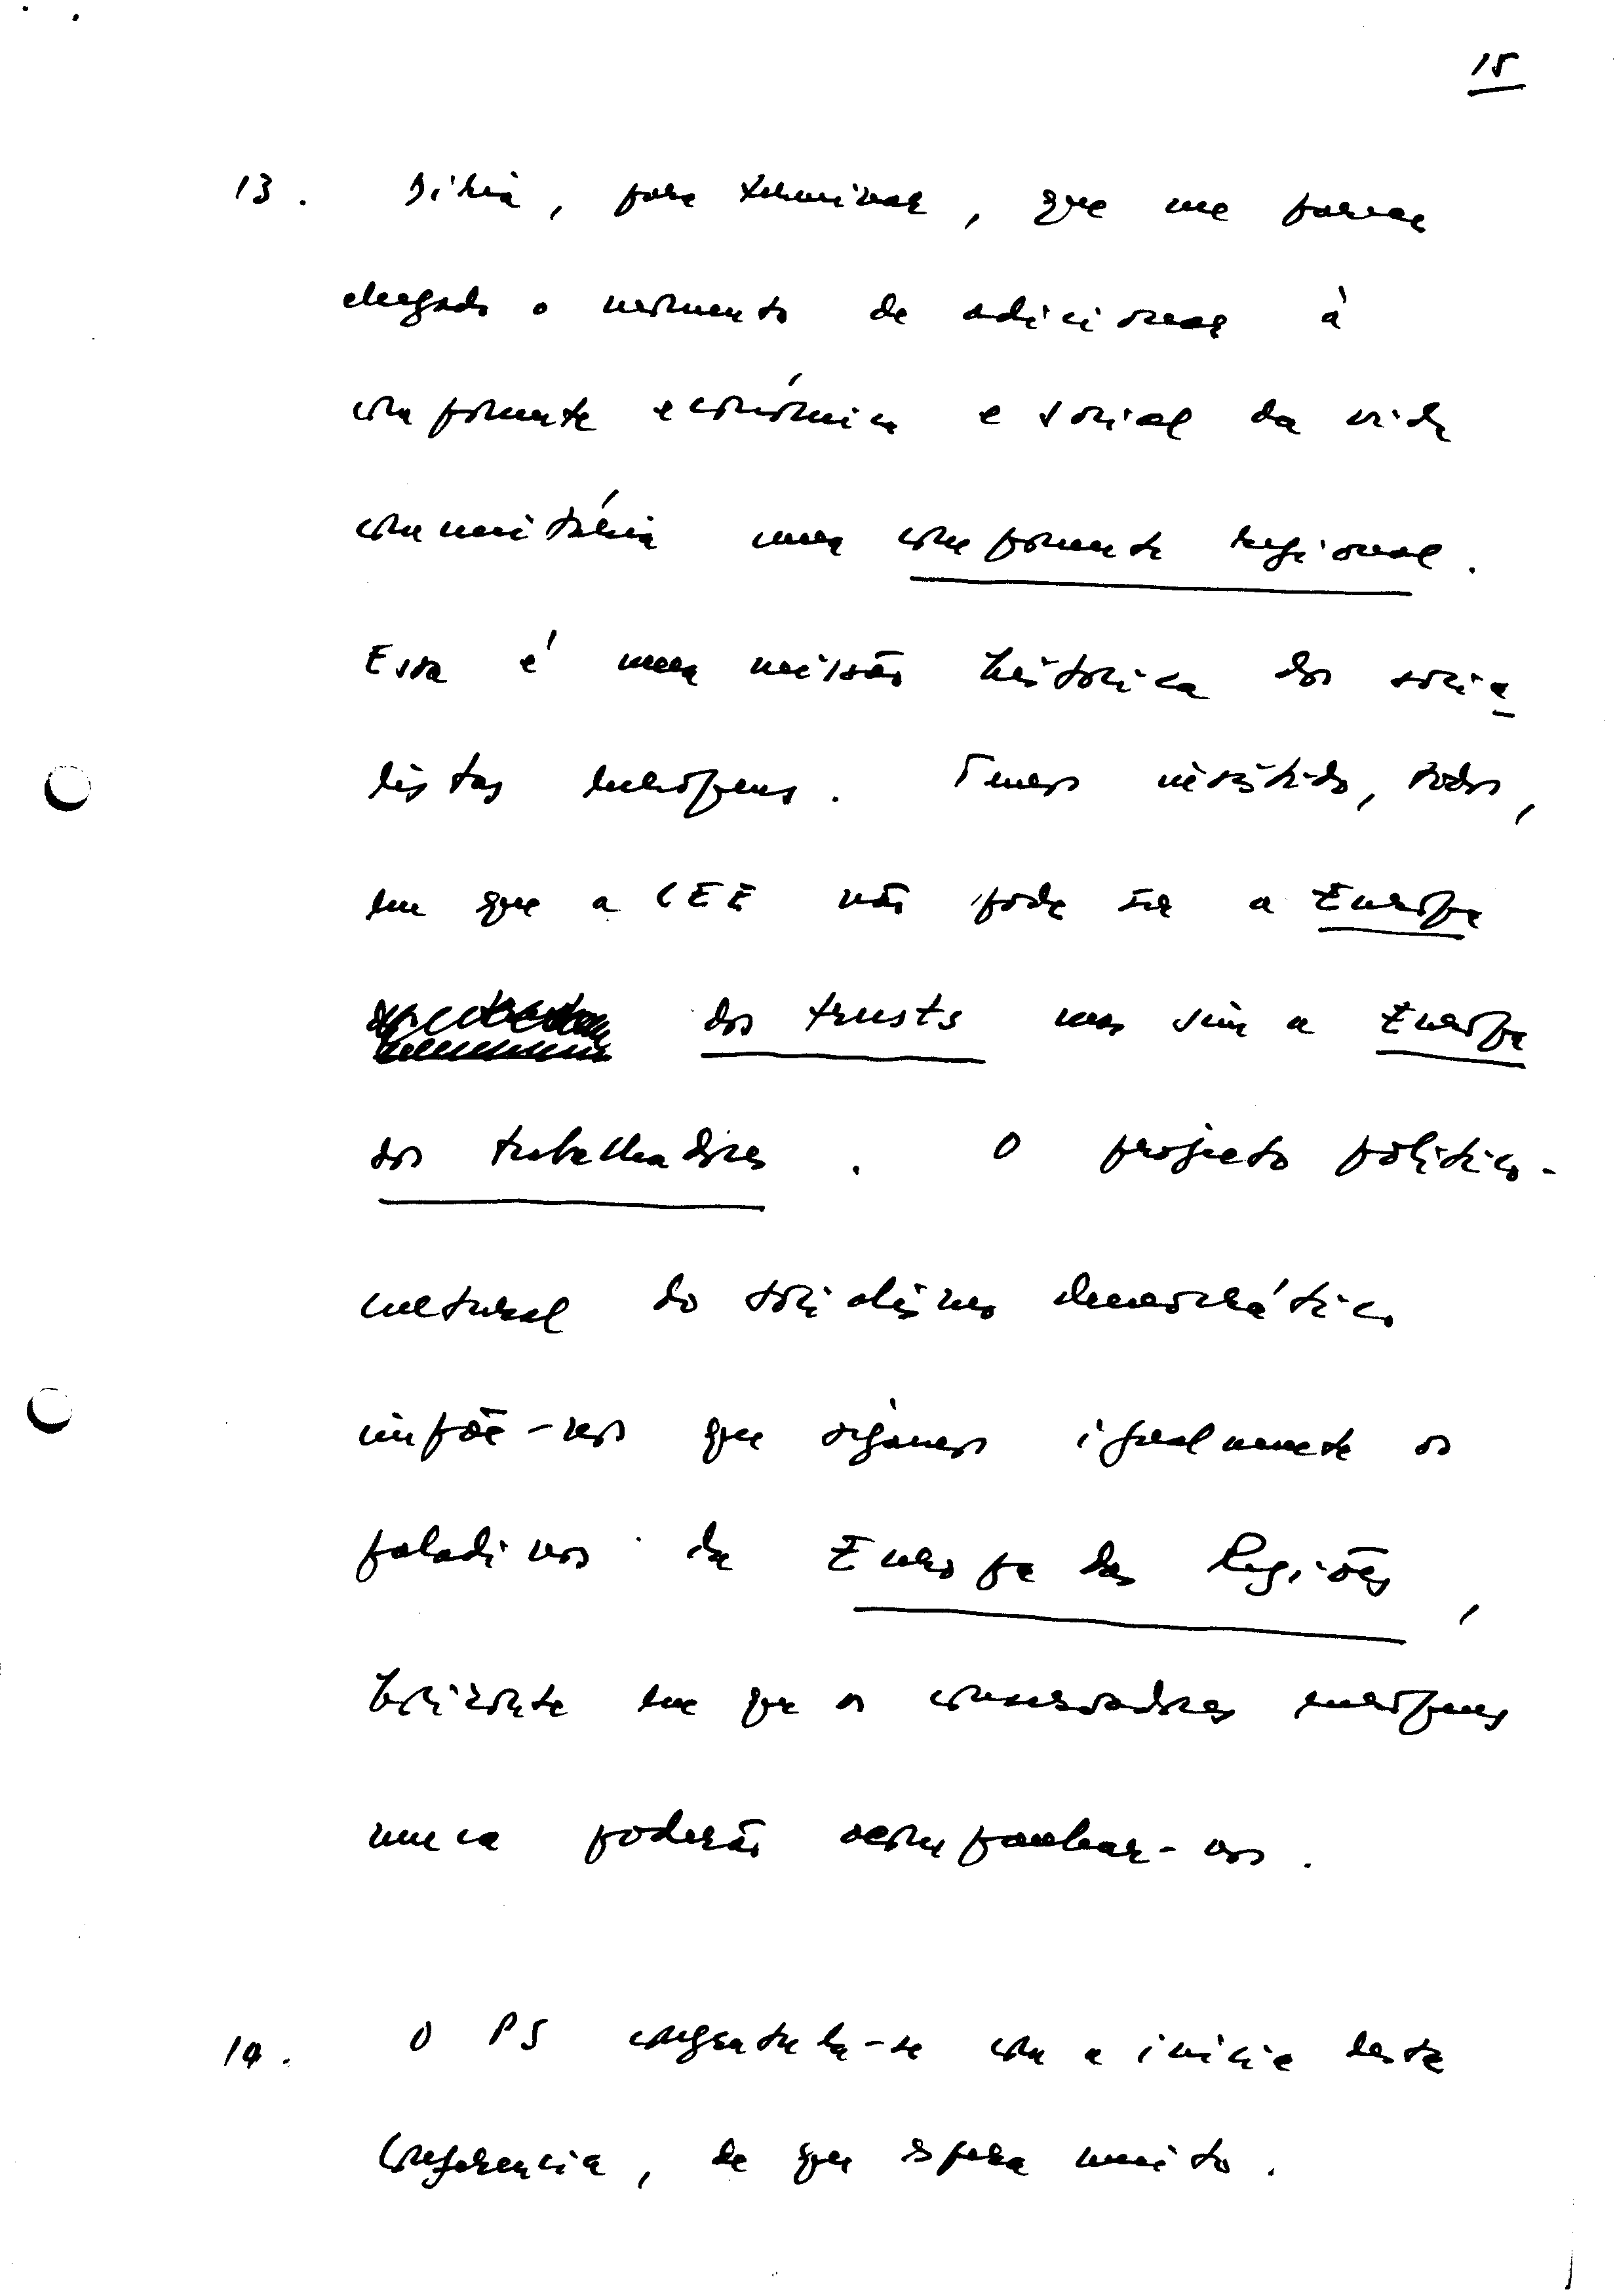 15
13. Diria, para terminar, que me parece
chegado o momento de adicionar à
componente económica e social da vida
comunitária uma componente regional.
Essa é uma missão histórica dos socia
listas europeus. Temos insistido, todos,
em que a CEE não pode ser a Europa
dos trusts mas sim a Europa
dos trabalhadores. O projecto político-
cultural do socialismo democrático
impõe-nos que sejamos igualmente os
paladinos da Europa das Regiões,
horizonte em que os conservadores europeus
nunca poderão acompanhar-nos.
14. O PS congratula-se com a inicia desta
Conferencia, de que espera muito.